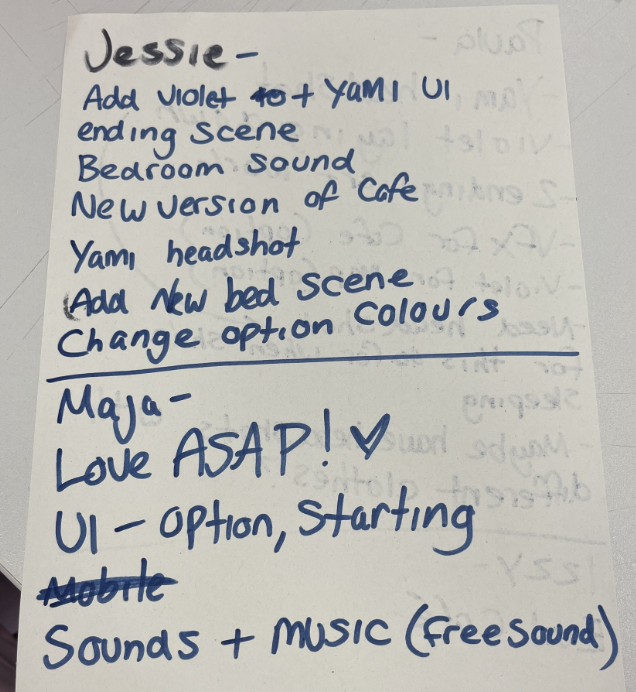 Jessie -
Add violet to + Yami UI
ending scene
Bedroom sound
New version of Cafe
Yami headshot
(Add New bed scene
Change option colours
Maja -
Love ASAP! ♡
UI - option, Starting
Mobile
Sounds + music (free sound)